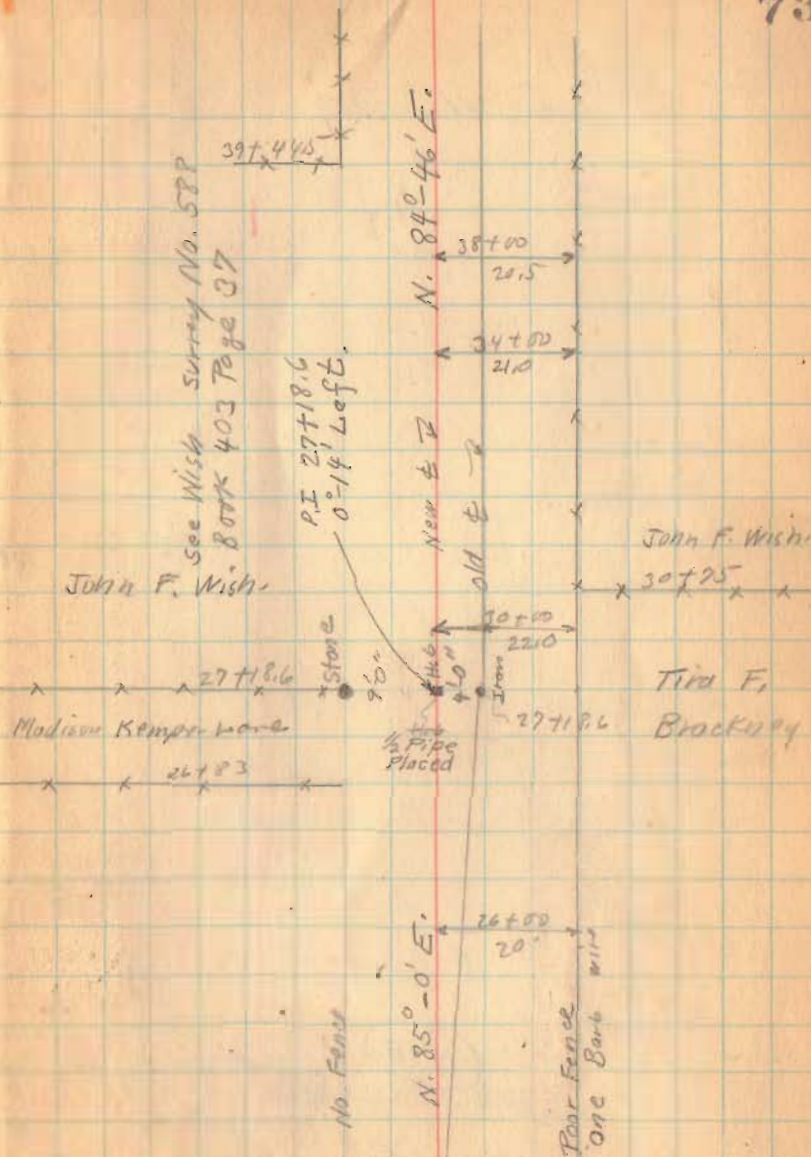 73
39+44.5
N. 84°-46' E.
See Wish Survey No. 588
Book 403 Page 37
38+00
20.5
34+00
21.0
P.I 27+18.6
0°-14' Left.
New ℄
Old ℄
John F. Wish.
John F. Wish.
30+75
30+00
22.0
27+18.6
Stone
9'0"
Hub
4'-0"
Iron
27+18.6
Tira F,
Brackney
Madison Kemper
½ Pipe
Placed
26+83
26+00
20'
N. 85°-0' E.
No. Fence
Poor Fence
one Barb wire